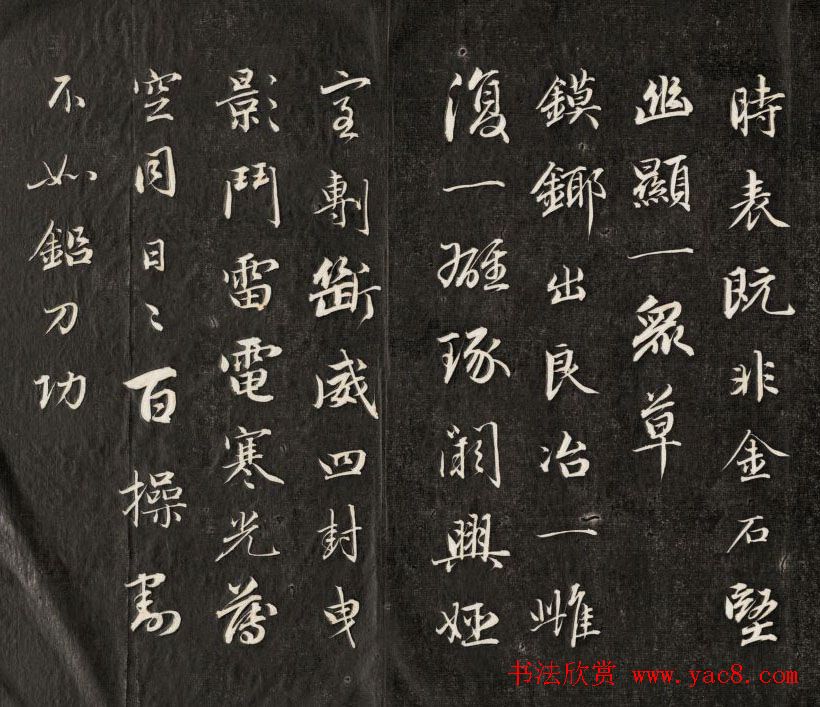 時表既非金石堅
幽顯一衆草
鏌鋣出良冶一雌
復一雄琢興
室剸斷威四封曳
影鬥雷電寒光薄
空同日〻百操割
不如鉛刀功
书法欣赏 www.yac8.com